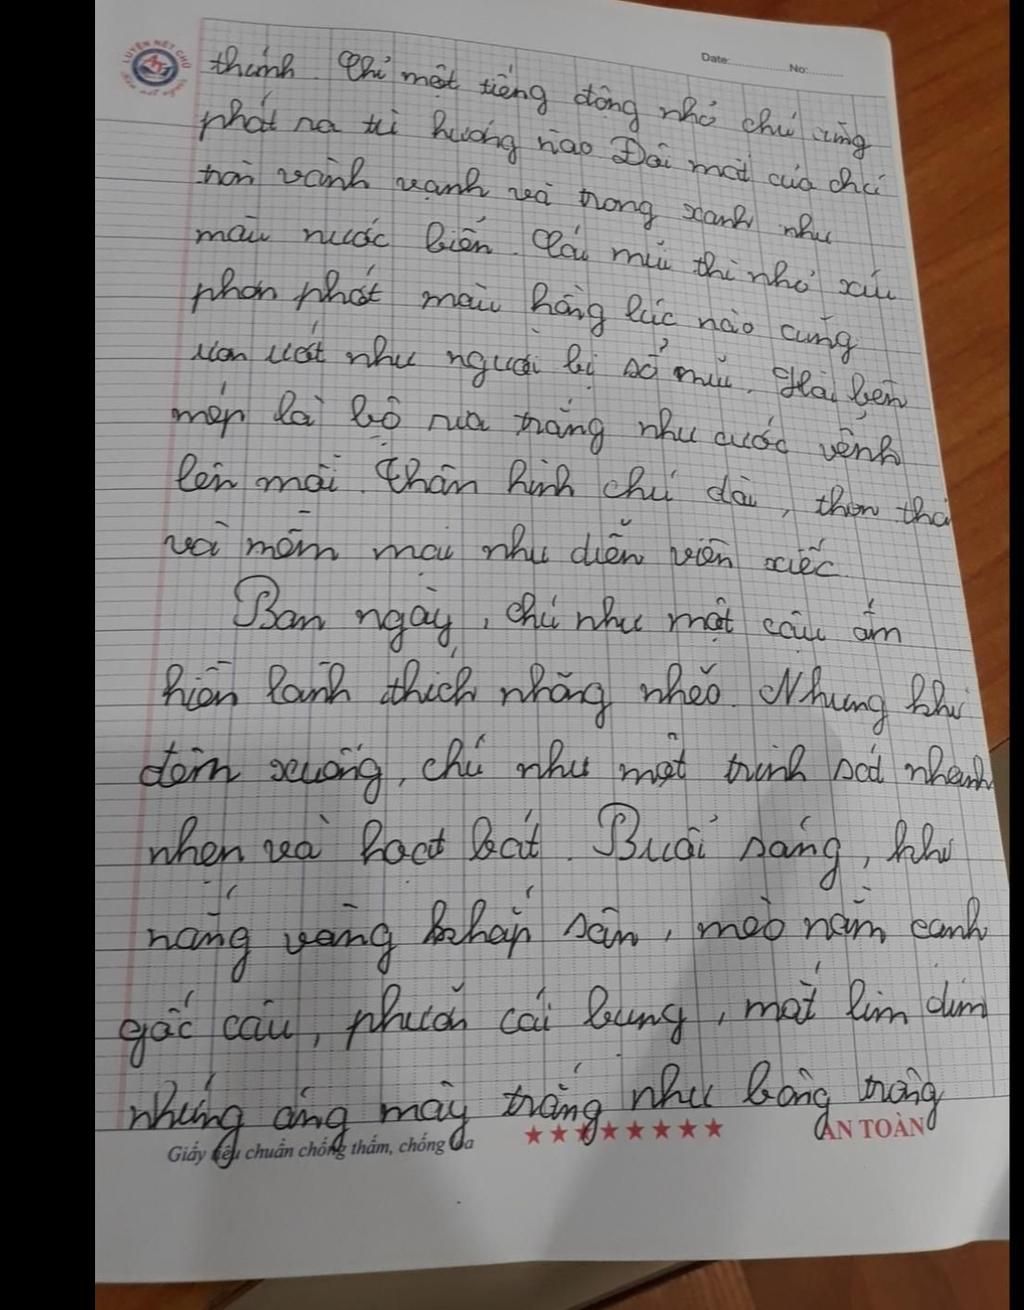 LUYỆN NÉT CHỮ
Date: No:
thính. Chỉ một tiếng động nhỏ chú cũng
phát ra từ hướng nào Đôi mắt của chú
tròn vành vạnh và trong xanh như
màu nước biển. Cái mũi thì nhỏ xíu
phơn phớt màu hồng lúc nào cũng
ươn ướt như người bị sổ mũi. Hai bên
mép là bộ ria trắng như cước vểnh
lên mãi. Thân hình chú dài, thon thả
và mềm mại như diễn viên xiếc
Ban ngày, chú như một cậu ấm
hiền lành thích nhõng nhẽo. Nhưng khi
đêm xuống, chú như một trinh sát nhanh
nhẹn và hoạt bát. Buổi sáng, khi
nắng vàng khắp sân, mèo nằm cạnh
gốc cau, phưỡn cái bụng, mắt lim dim
những áng mây trắng như bông trong
Giấy tiêu chuẩn chống thấm, chống lóa
★★★★★★★★ AN TOÀN